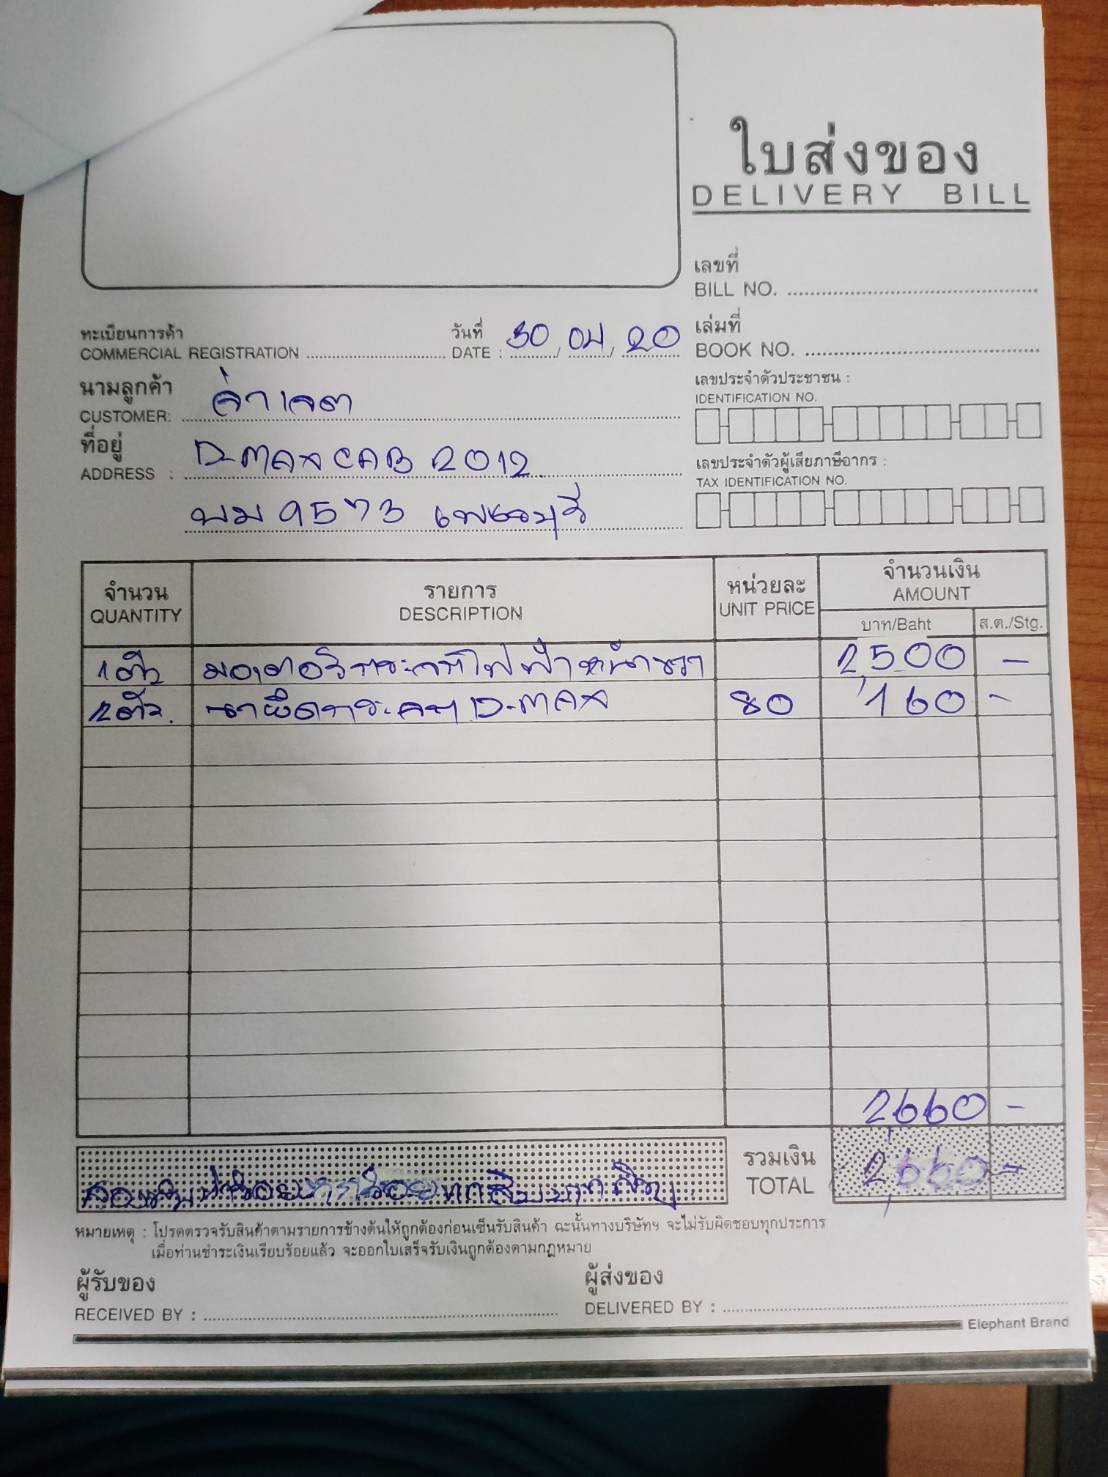 ใบส่งของ
DELIVERY BILL
เลขที่
BILL NO.
ทะเบียนการค้า
COMMERCIAL REGISTRATION
วันที่
DATE : 30 / 04 / 20
เล่มที่
BOOK NO.
นามลูกค้า
CUSTOMER:
ที่อยู่
ADDRESS : D-MAX CAB 2012
บม 9573 เพชรบุรี
เลขประจำตัวประชาชน :
IDENTIFICATION NO.
เลขประจำตัวผู้เสียภาษีอากร :
TAX IDENTIFICATION NO.
จำนวน รายการ หน่วยละ จำนวนเงิน
QUANTITY DESCRIPTION UNIT PRICE AMOUNT
บาท/Baht ส.ต./Stg.
1 ตัว มอเตอร์กระจกไฟฟ้าหน้าขวา 2,500 -
2 ตัว. D-MAX 80 160 -
2660 -
รวมเงิน
TOTAL 2660 -
หมายเหตุ : โปรดตรวจรับสินค้าตามรายการข้างต้นให้ถูกต้องก่อนเซ็นรับสินค้า ฉะนั้นทางบริษัทฯ จะไม่รับผิดชอบทุกประการ
เมื่อท่านชำระเงินเรียบร้อยแล้ว จะออกใบเสร็จรับเงินถูกต้องตามกฎหมาย
ผู้รับของ
RECEIVED BY :
ผู้ส่งของ
DELIVERED BY :
Elephant Brand